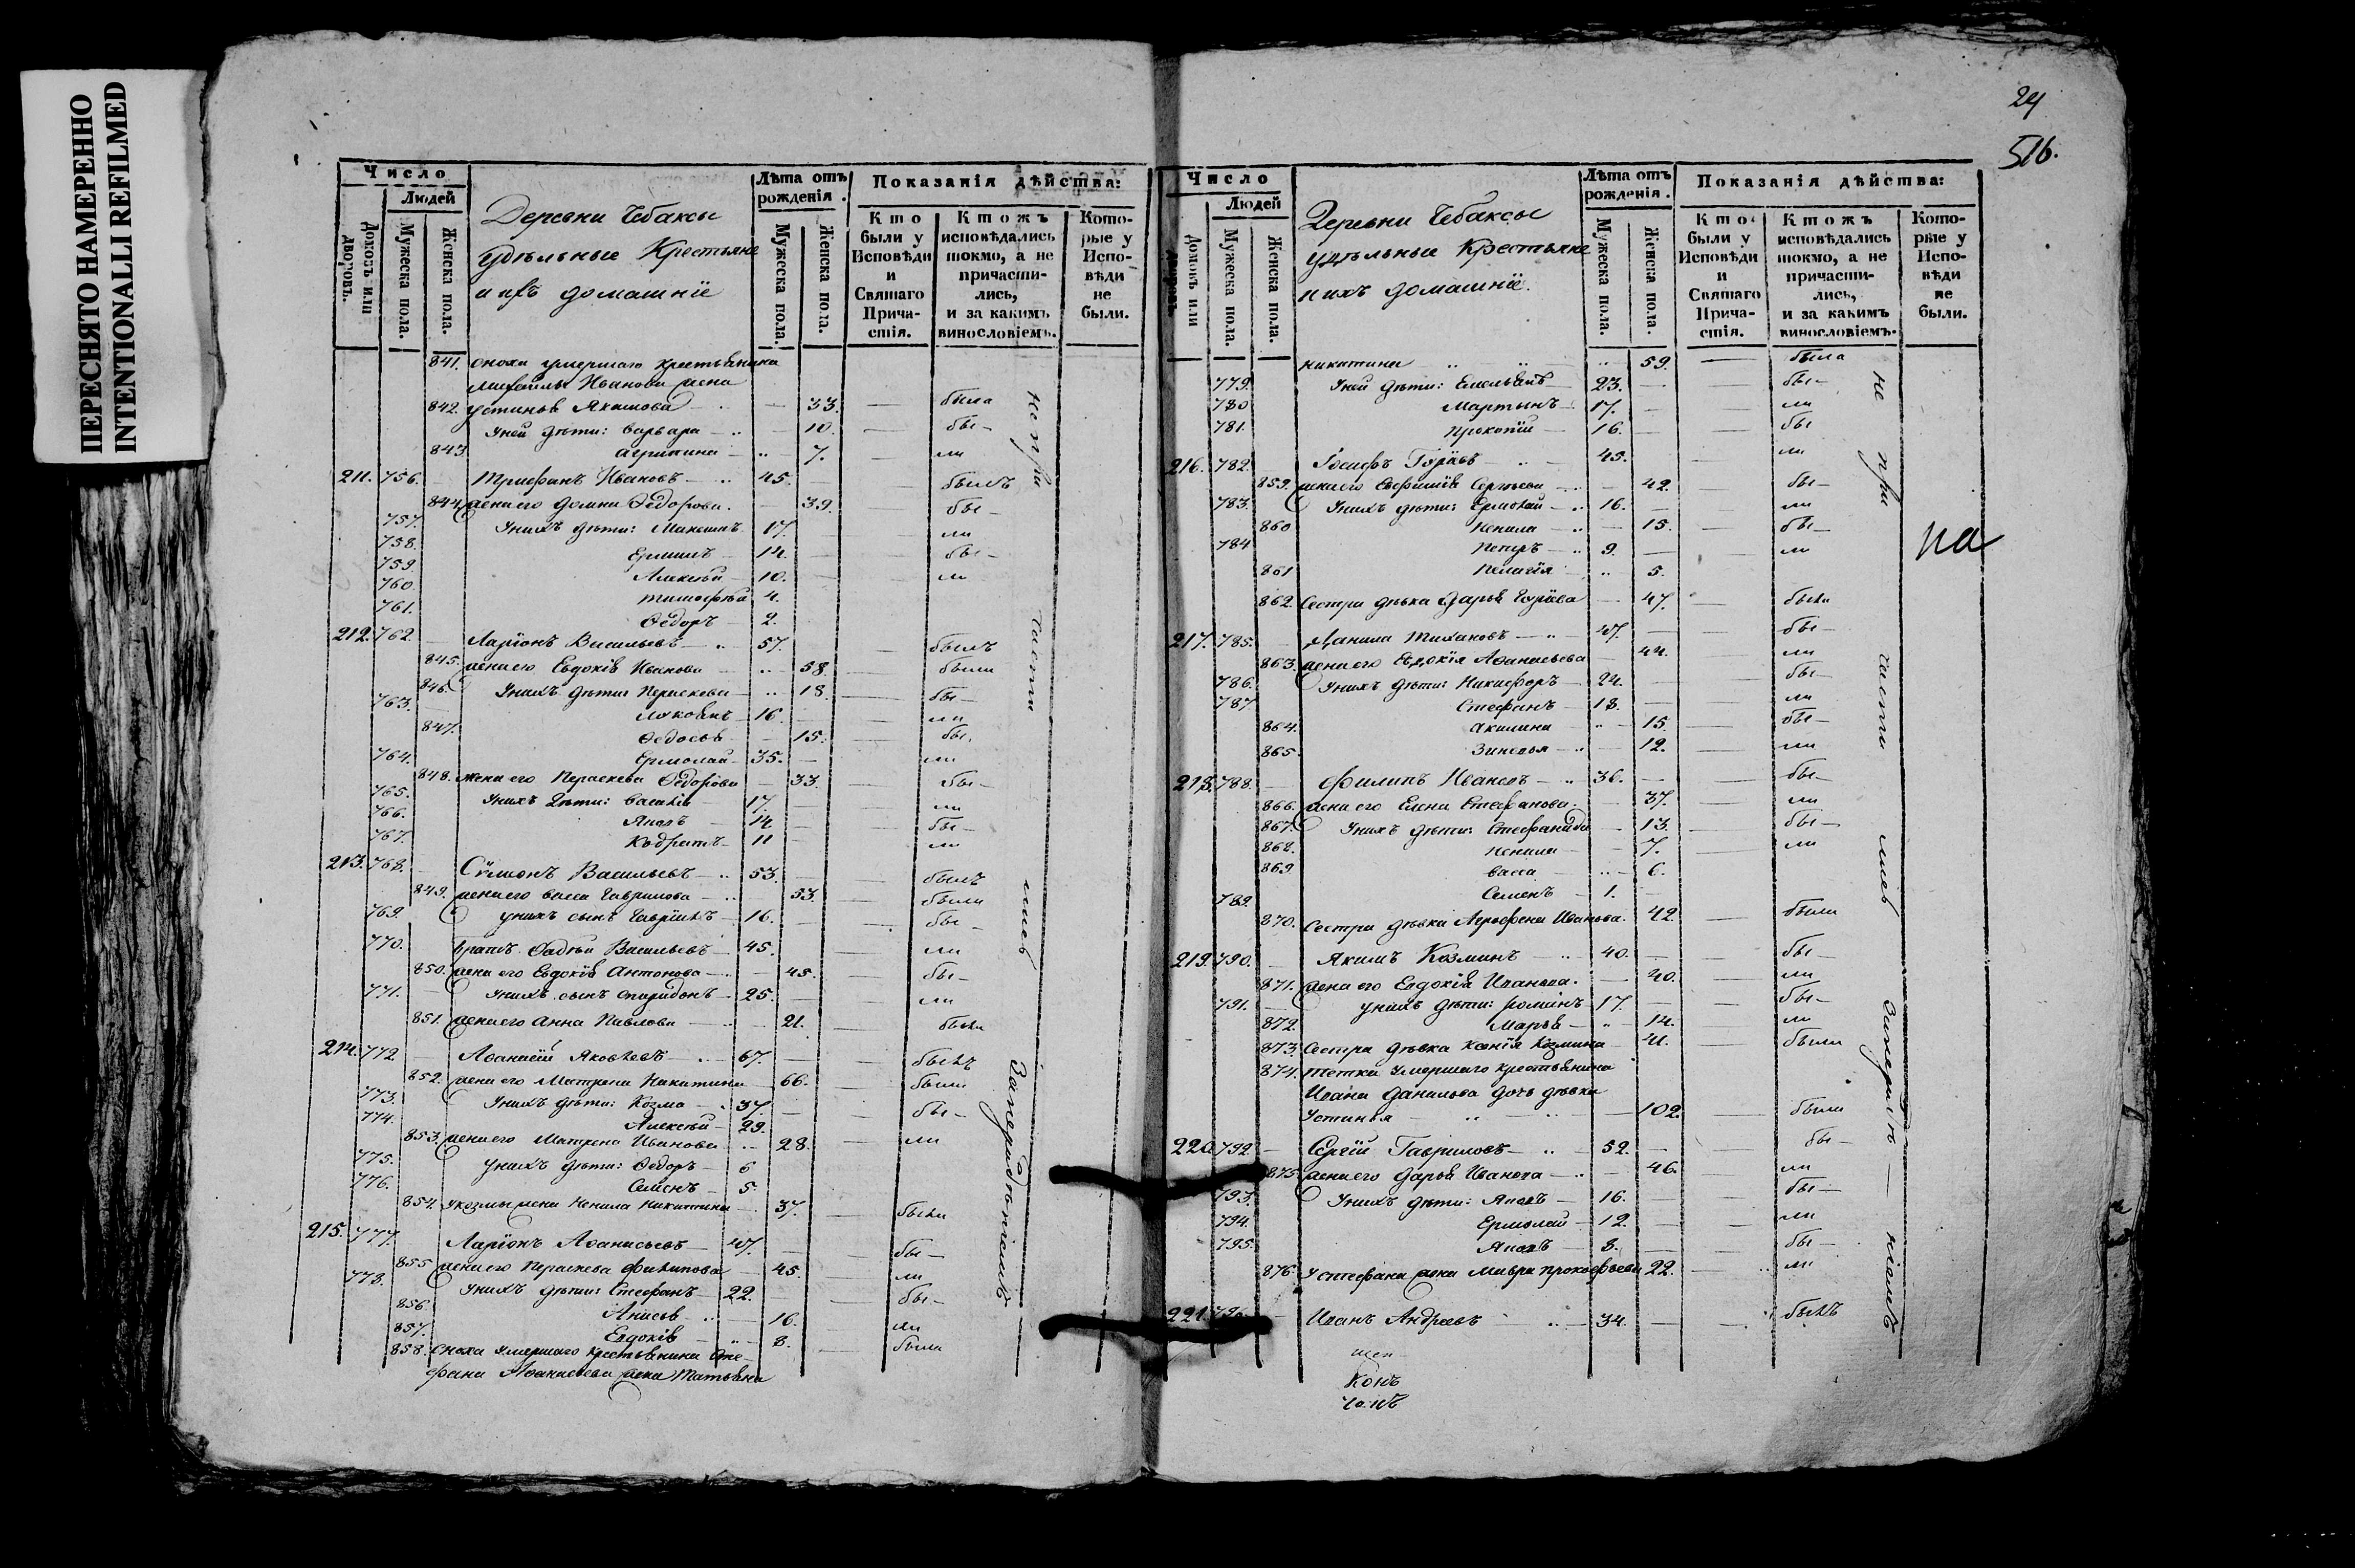 ПЕРЕСНЯТО НАМЕРЕННО
INTENTIONALLI REFILMED
Число
Людей
Домовъ или дворовъ.
Мужеска пола.
Женска пола.
Деревни Чебаксы
удѣльные Крестьяне
и ихъ домашніе
Лѣта отъ рожденія.
Мужеска пола.
Женска пола.
Показанія дѣйства:
Кто были у Исповѣди и Святаго Прича-стія.
Ктожъ исповѣдались токмо, а не причасти-лись, и за какимъ винословіемъ.
Кото-рые у Испо-вѣди не были.
841. сноха умершаго крестьянина
Михайлы Иванова жена
842. устинья Якимова — 33. — была
у ней дѣти: варвара — 10. — бы-
843. агрипина — 7. — ли
211. 756. Трифонъ Ивановъ — 45. — былъ
844. жена его домна Ѳедорова. — 39. — бы-
757. У нихъ дѣти: 17. — ли
758. Ермилъ 14. — бы-
759. Алексѣй — 10. — ли
760. тимофѣй 4.
761. Ѳедоръ — 2.
212. 762. Ларіонъ Васильевъ — 57. — былъ
845. жена его Евдокія Иванова — 58. — была
846. У нихъ дѣти: Параскева — 18. — бы-
763. 16. — ли
847. Ѳедосья — 15. — бы-
764. Ермолай — 35. — ли
848. жена его Параскева Ѳедорова — 33. — бы-
765. У нихъ дѣти: Василій 17. — ли
766. 14 — бы-
767. Кодратъ — 11 — ли
213. 768. Сѵмеонъ Васильевъ — 53. — былъ
849. жена его васса Гаврилова — 53. — была
769. у нихъ сынъ Гавріилъ — 16. — бы-
770. братъ Ѳадѣй Васильевъ — 45. — ли
850. жена его Евдокія Антонова — 45. — бы-
771. У нихъ сынъ спиридонъ — 25. — ли
851. жена его Анна Павлова — 21. — была
214. 772 Аѳанасій Яковлевъ — 67. — былъ
852. жена его Матрена Никитина 66. — была
773. У нихъ дѣти: Козма — 37. — бы-
774. Алексѣй — 29.
853. жена его Матрена Иванова — 28. — ли
775. У нихъ дѣти: Ѳедоръ — 6
776. Семенъ — 5.
854. у козмы жена Ненила Никитина — 37. — была
215. 777. Ларіонъ Аѳанасьевъ — 47. — бы-
855 жена его Параскева Филипова — 45. — ли
778. У нихъ дѣти: Стефанъ — 22. — бы-
856. Анисья — 16. — ли
857. Евдокія — 8.
858. сноха умершаго крестьянина Сте-
фана Аѳанасьева жена Татьяна
не при части лись
24
516.
Число
Людей
Домовъ или дворовъ.
Мужеска пола.
Женска пола.
Деревни Чебаксы
удѣльные Крестьяне
и ихъ домашніе.
Лѣта отъ рожденія.
Мужеска пола.
Женска пола.
Показанія дѣйства:
Кто были у Исповѣди и Святаго Прича-стія.
Ктожъ исповѣдались токмо, а не причасти-лись, и за какимъ винословіемъ.
Кото-рые у Испо-вѣди не были.
никитина 59. — была
779. У ней дѣти: Емельянъ 23. — бы-
780 Мартынъ — 17. — ли
781. прокопій — 16. — бы
216. 782. Іосифъ — 45. — ли
859. жена его Сергѣева — 42. — бы-
783. У нихъ дѣти: Ермолай — 16. — ли
860 Ненила — 15. — бы-
784 Петръ — 9. — ли
861 Пелагія — 5.
862. Сестра дѣвка дарья — 47. — была
217. 785. Данила 47. — бы-
863. жена его Евдокія Аѳанасьева — 44. — ли
786. У нихъ дѣти: Никифоръ — 24. — бы-
787 Стефанъ — 18. — ли
864. акилина — 15. — бы-
865. Зиновья — 12. — ли
218. 788. Филипъ Ивановъ — 36. — бы-
866. жена его Елена Стефанова. — 37. — ли
867. У нихъ дѣти: Стефанида — 13. — бы-
868. Ненила — 7. — ли
869 васса — 6.
789 Семенъ 1.
870. Сестра дѣвка Агрофена Иванова. 42. — была
219. 790. Якимъ Козминъ — 40. — бы-
871. жена его Евдокія Иванова. — 40. — ли
791. у нихъ дѣти: романъ 17. — бы-
872. Марья — 14. — ли
873. Сестра дѣвка ксенія Козмина — была
874. тетка умершаго крестьянина
Ивана данилова дочь дѣвка
Устинья — 102. — была
220. 792 Сергій Гавриловъ — 52. — бы-
875. жена его дарья Иванова — 46. — ли
793. У нихъ дѣти: 16. — бы-
794 Ермолай — 12. — ли
795. 8. — бы-
876. у стефана жена мавра прокофьева 22. — ли
221. Иванъ Андреевъ — 34. — былъ
не при части лись
на